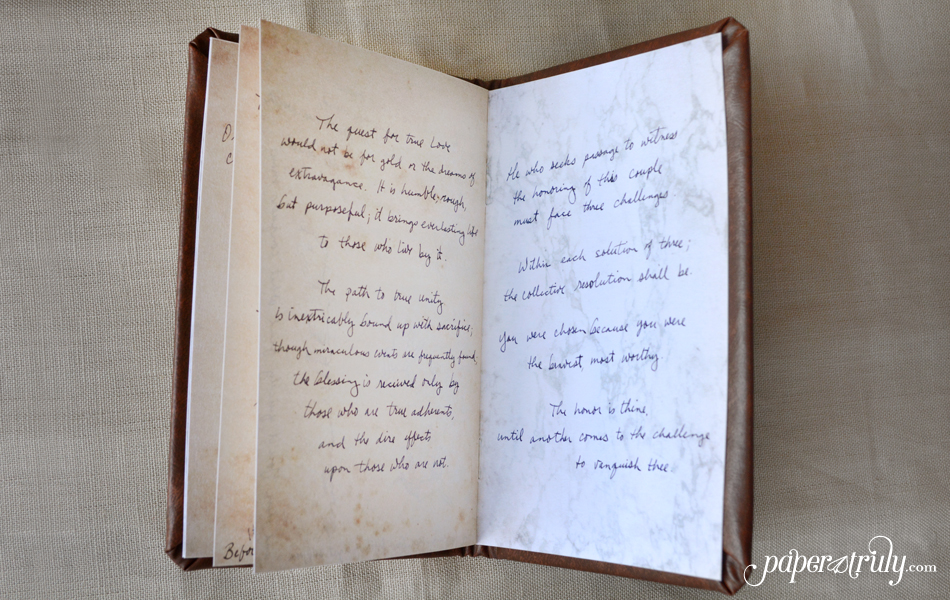 The quest for true love
would not be for gold or the dreams of
extravagance. It is humble, rough,
but purposeful; it brings everlasting life
to those who live by it.
The path to true unity
is inextricably bound up with sacrifice;
though miraculous events are frequently found,
the blessing is received only by
those who are true adherents,
and the dire effects
upon those who are not.
Befor
He who seeks passage to witness
the honoring of this couple
must face three challenges.
Within each solution of three;
the collective resolution shall be.
You were chosen because you were
the bravest, most worthy.
The honor is thine,
until another comes to the challenge
to vanquish thee.
papertruly.com